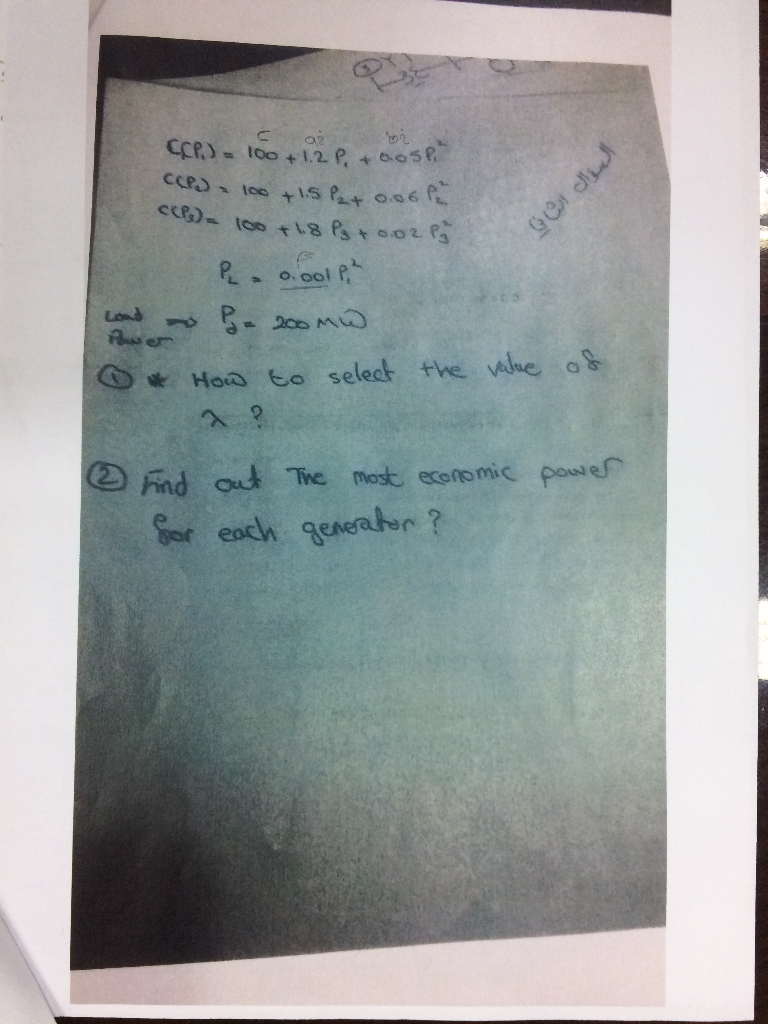 c ai bi
C(P₁) = 100 + 1.2 P₁ + 0.05 P₁²
C(P₂) = 100 + 1.5 P₂ + 0.06 P₂²
C(P₃) = 100 + 1.8 P₃ + 0.02 P₃²
السؤال الثاني
P_L = 0.001 P₁²
Load Power ⇒ P_d = 200 MW
① * How to select the value of
λ ?
② Find out The most economic power
for each generator ?